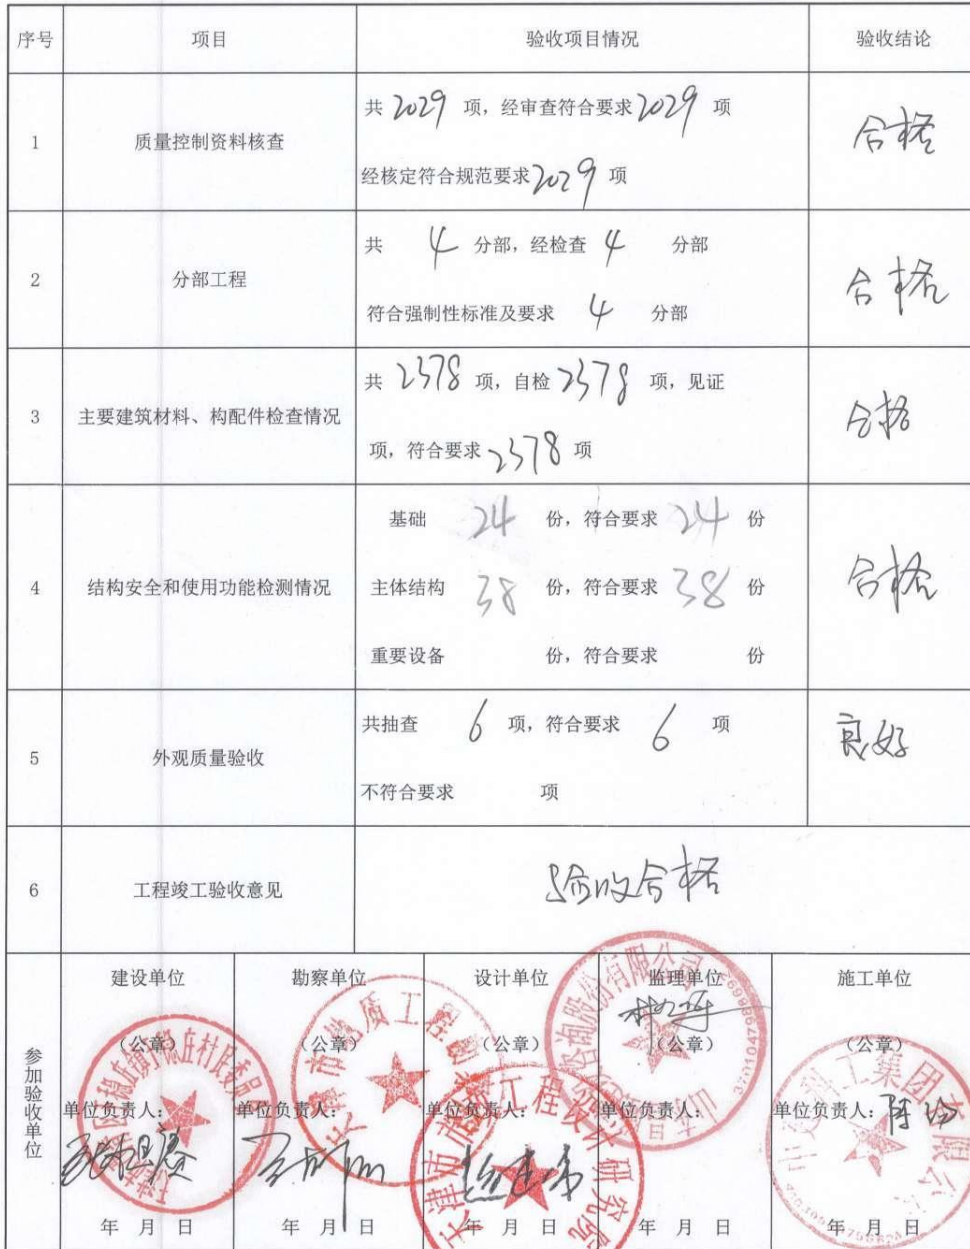 序号 项目 验收项目情况 验收结论
1 质量控制资料核查 共 2029 项，经审查符合要求 2029 项
经核定符合规范要求 2029 项 合格
2 分部工程 共 4 分部，经检查 4 分部
符合强制性标准及要求 4 分部 合格
3 主要建筑材料、构配件检查情况 共 2378 项，自检 2378 项，见证
项，符合要求 2378 项 合格
4 结构安全和使用功能检测情况 基础 24 份，符合要求 24 份
主体结构 38 份，符合要求 38 份 合格
重要设备 份，符合要求 份
5 外观质量验收 共抽查 6 项，符合要求 6 项 良好
不符合要求 项
6 工程竣工验收意见 验收合格
参加验收单位
建设单位 勘察单位 设计单位 监理单位 施工单位
（公章） （公章） （公章） （公章） （公章）
单位负责人： 单位负责人： 单位负责人： 单位负责人： 单位负责人：
年 月 日 年 月 日 年 月 日 年 月 日 年 月 日